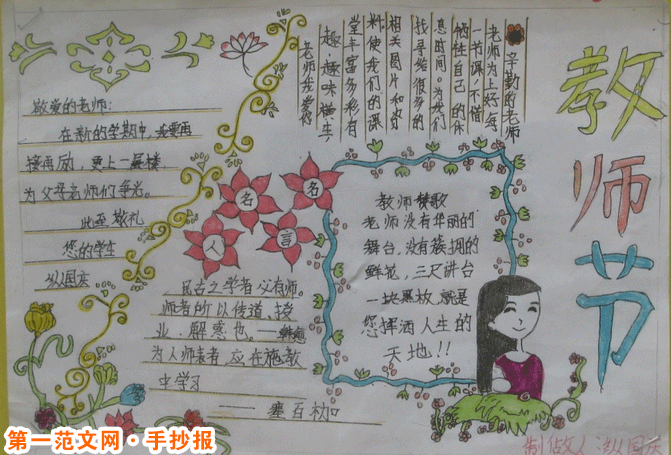 教师节
辛勤的老师
老师为上好每
一节课,不惜
牺牲自己的休
息时间。为我们
找寻给很多的
相关图片和
料,使我们的课
堂丰富多彩有
趣,趣味横生,
老师我爱你
敬爱的老师:
在新的学期中,我要再
接再励,更上一层楼,
为父母亲师们争光。
此至敬礼
您的学生
纵国庆
名人名言
古之学者必有师。
师者所以传道,授
业,解惑也。——韩愈
为人师表者应在施教
中学习
——塞百初
教师赞歌
老师没有华丽的
舞台,没有簇拥的
鲜花,三尺讲台
一块黑板,就是
您挥洒人生的
天地!!
制做人:纵国庆
第一范文网·手抄报